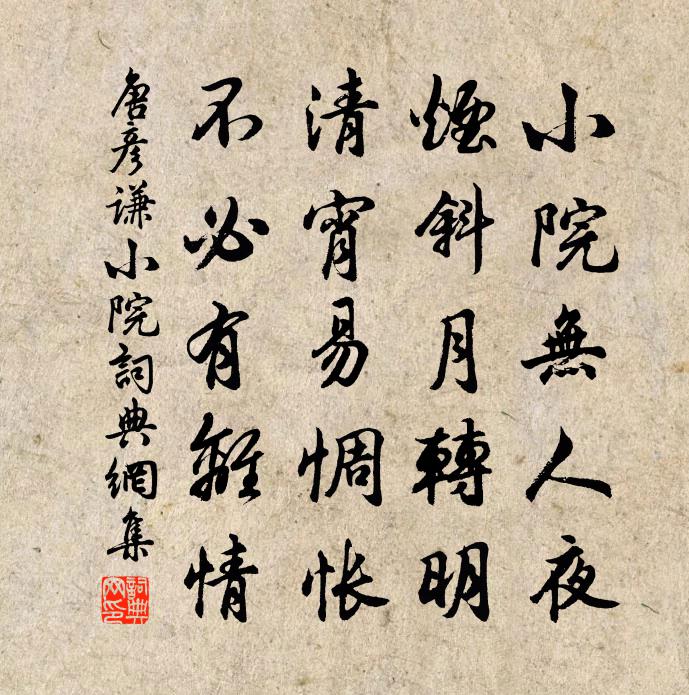 小院無人夜
煙斜月轉明
清宵易惆悵
不必有離情
唐彥謙小院詞典網集
詞典網印